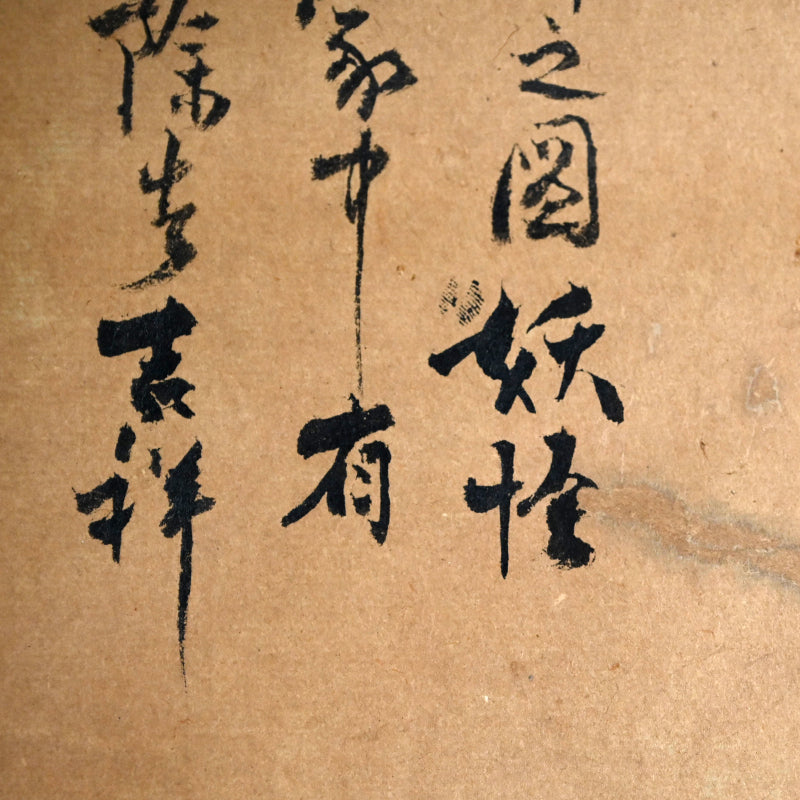 之圖妖怪
家中有
除吉祥